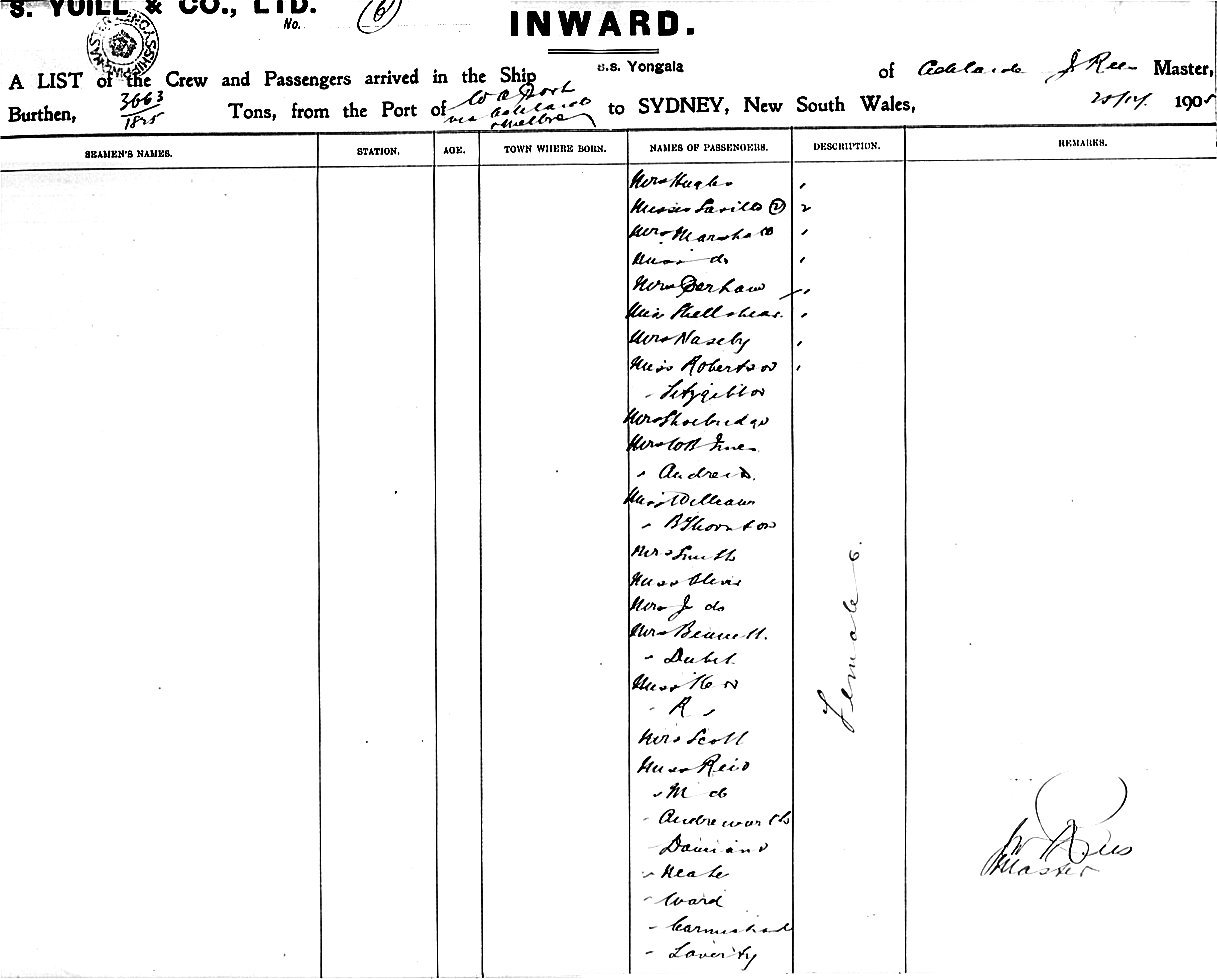 S. YUILL & CO., LTD.
No. (6)
INWARD.
A LIST of the Crew and Passengers arrived in the Ship s.s. Yongala of Adelaide J Rees Master,
Burthen, 3663 / 1825 Tons, from the Port of W A Port via Adelaide & Melbne to SYDNEY, New South Wales, 1905
SEAMEN'S NAMES. STATION. AGE. TOWN WHERE BORN. NAMES OF PASSENGERS. DESCRIPTION. REMARKS.
Mrs Hughes
Misses Saville (2) 2
Mrs Marshall
Miss do
Mrs Derham
Miss Shellshear
Mrs Naseby
Miss Robertson
" Fitzgibbon
Mrs Shoebridge
Mrs W B Innes
" Andrews
Miss Williams
" B Thornton
Mrs Smith
Miss Olive
Mrs J do
Mrs Bennett
"
Miss
" R
Mrs Scott
Miss Reid
" M do
" Andrewartha
" Damiano
" Neale
" Ward
" Carmichael
" Laverty
Females
Rees
Master